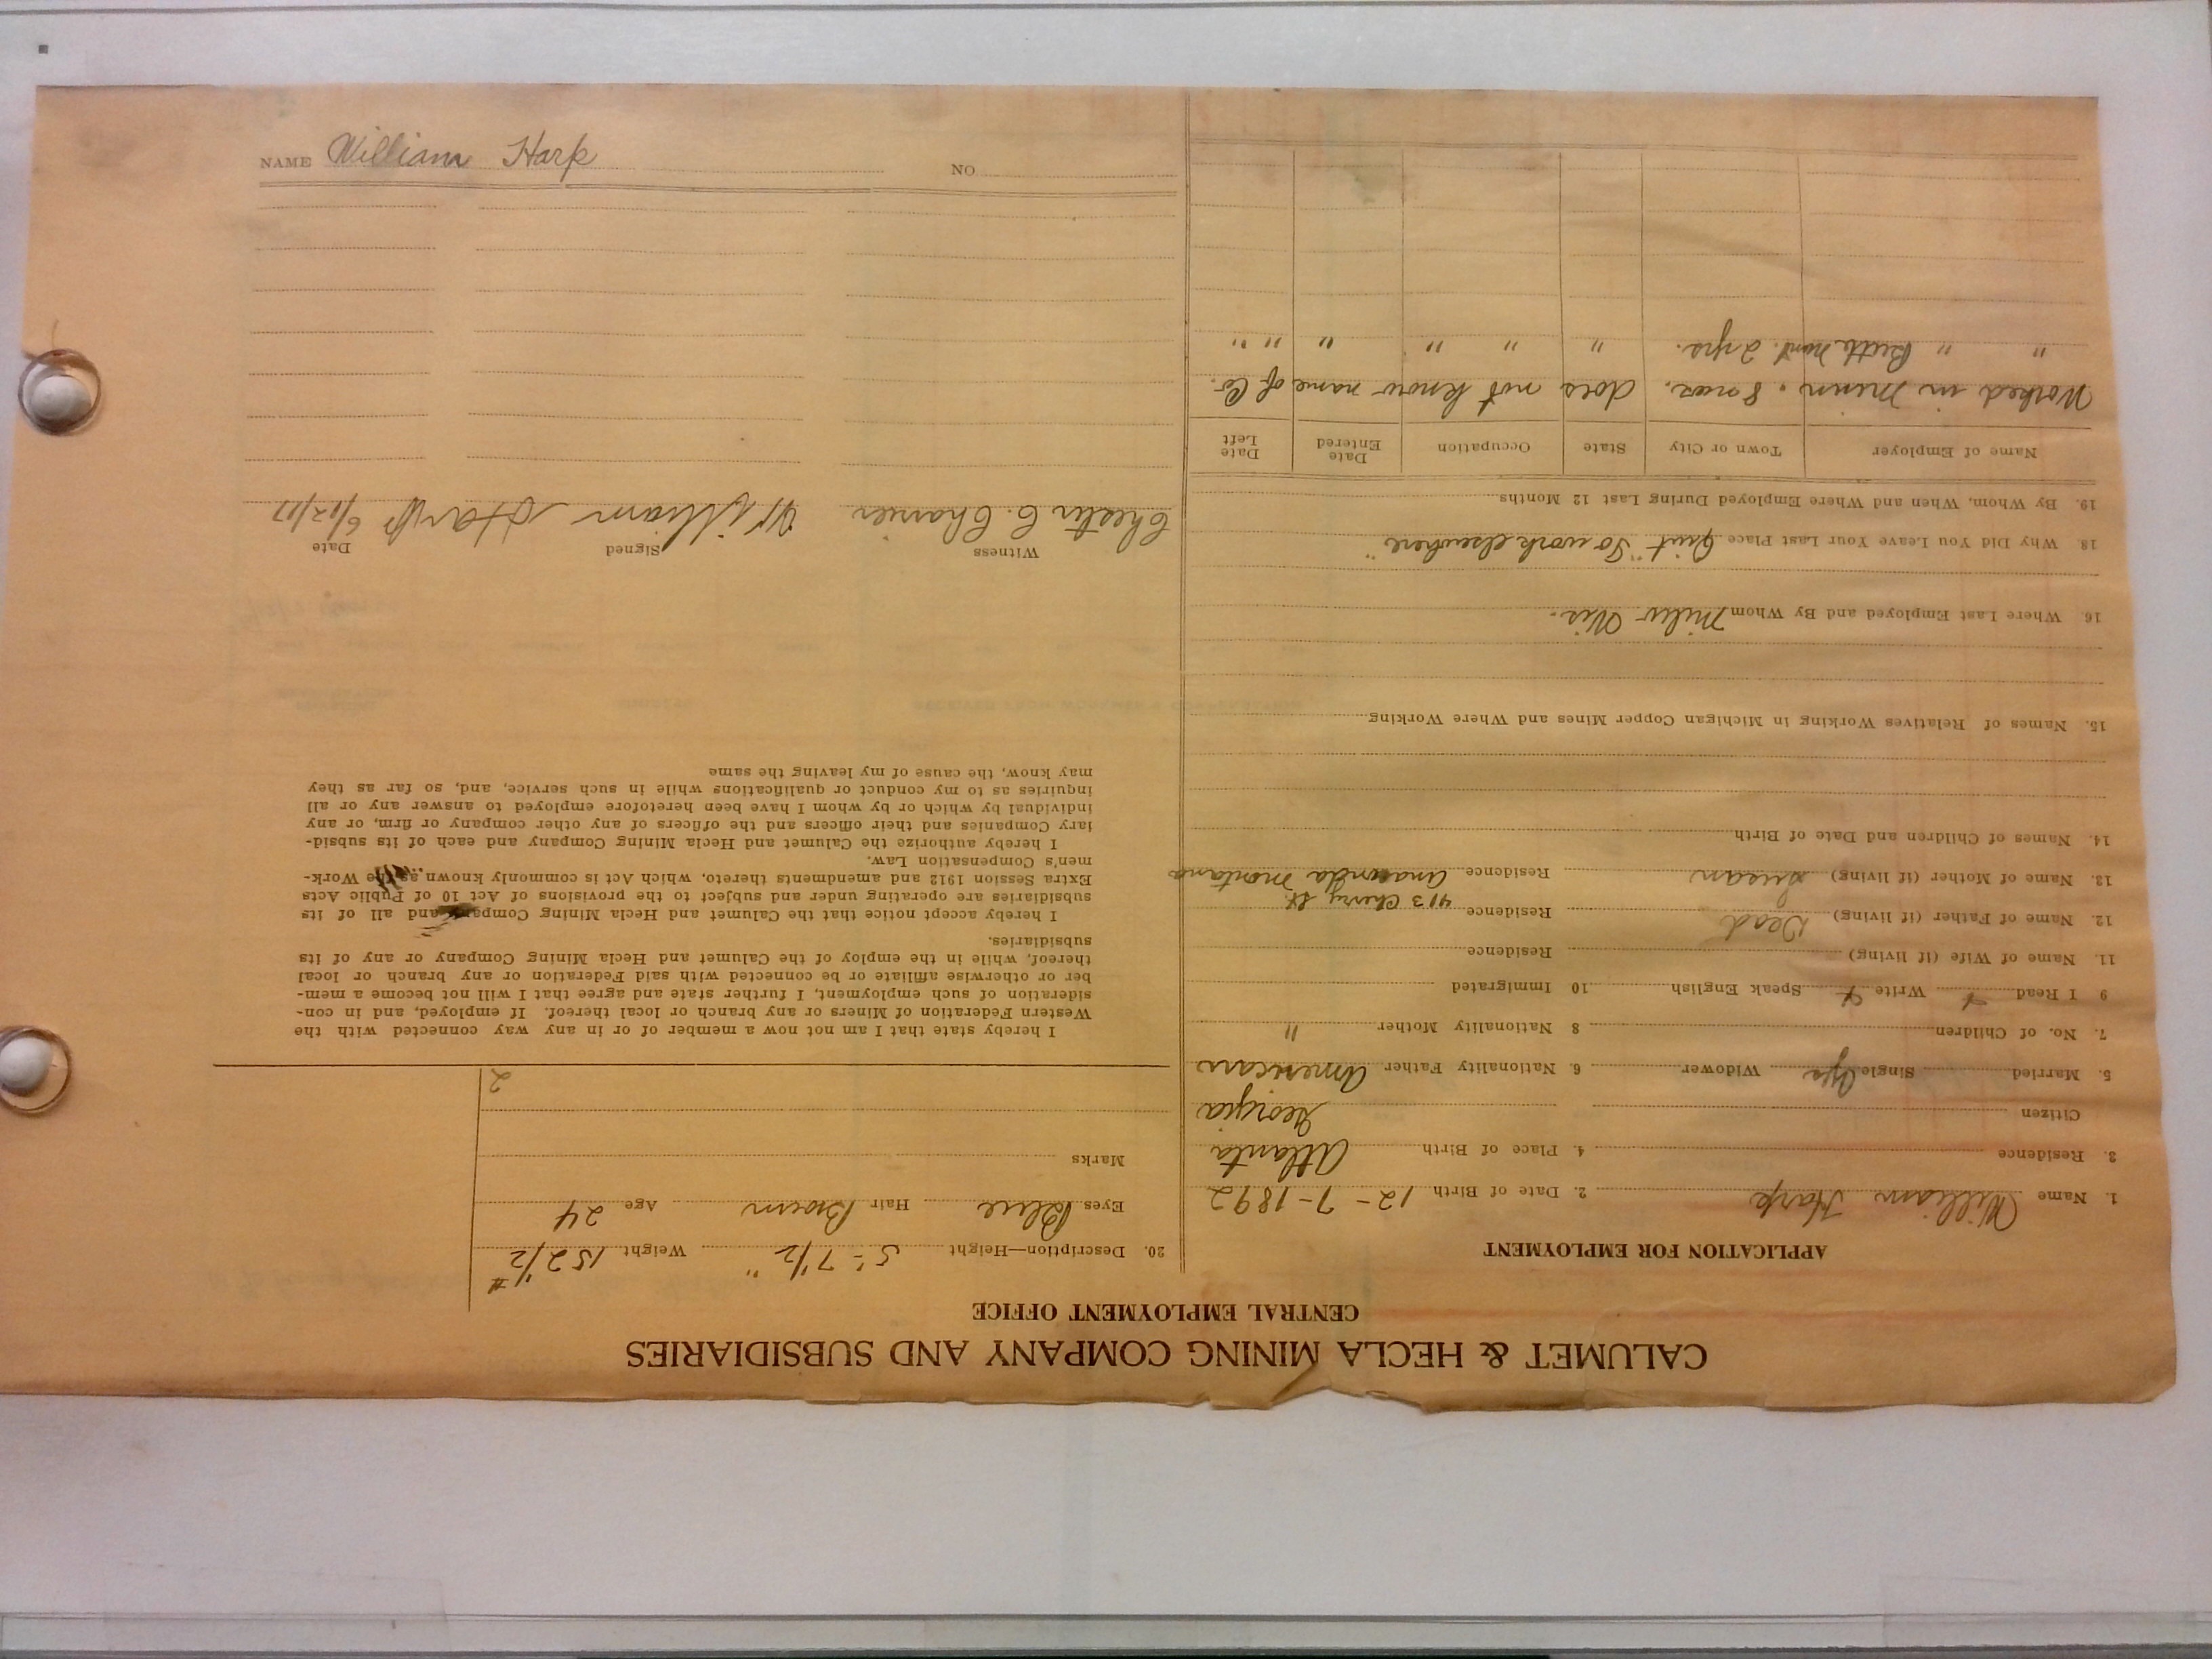 CALUMET & HECLA MINING COMPANY AND SUBSIDIARIES
CENTRAL EMPLOYMENT OFFICE
APPLICATION FOR EMPLOYMENT
1. Name William Harp 2. Date of Birth 12-7-1892
3. Residence 4. Place of Birth Atlanta
Citizen Georgia
5. Married Single Yes Widower 6. Nationality Father American
7. No. of Children 8 Nationality Mother "
9 I Read Y Write Y Speak English 10 Immigrated
11. Name of Wife (if living) Residence
12. Name of Father (if living) Dead Residence 413 Cherry St.
13. Name of Mother (if living) Susan Residence Anaconda Montana
14. Names of Children and Date of Birth
15. Names of Relatives Working in Michigan Copper Mines and Where Working
16. Where Last Employed and By Whom Milw Wis.
18. Why Did You Leave Your Last Place Quit "To work elsewhere"
19. By Whom, When and Where Employed During Last 12 Months
Name of Employer Town or City State Occupation Date Entered Date Left
Worked in Minn. 8 mos. does not know name of Co.
" " Butte Mont. 2 yrs. " " " " " "
20. Description—Height 5'-7 1/2" Weight 152 1/2 #
Eyes Blue Hair Brown Age 24
Marks
2
I hereby state that I am not now a member of or in any way connected with the
Western Federation of Miners or any branch or local thereof. If employed, and in con-
sideration of such employment, I further state and agree that I will not become a mem-
ber or otherwise affiliate or be connected with said Federation or any branch or local
thereof, while in the employ of the Calumet and Hecla Mining Company or any of its
subsidiaries.
I hereby accept notice that the Calumet and Hecla Mining Company and all of its
subsidiaries are operating under and subject to the provisions of Act 10 of Public Acts
Extra Session 1912 and amendments thereto, which Act is commonly known as the Work-
men's Compensation Law.
I hereby authorize the Calumet and Hecla Mining Company and each of its subsid-
iary Companies and their officers and the officers of any other company or firm, or any
individual by which or by whom I have been heretofore employed to answer any or all
inquiries as to my conduct or qualifications while in such service, and, so far as they
may know, the cause of my leaving the same
Witness Signed Date
Chester C. William Harp 6/12/17
NAME William Harp NO